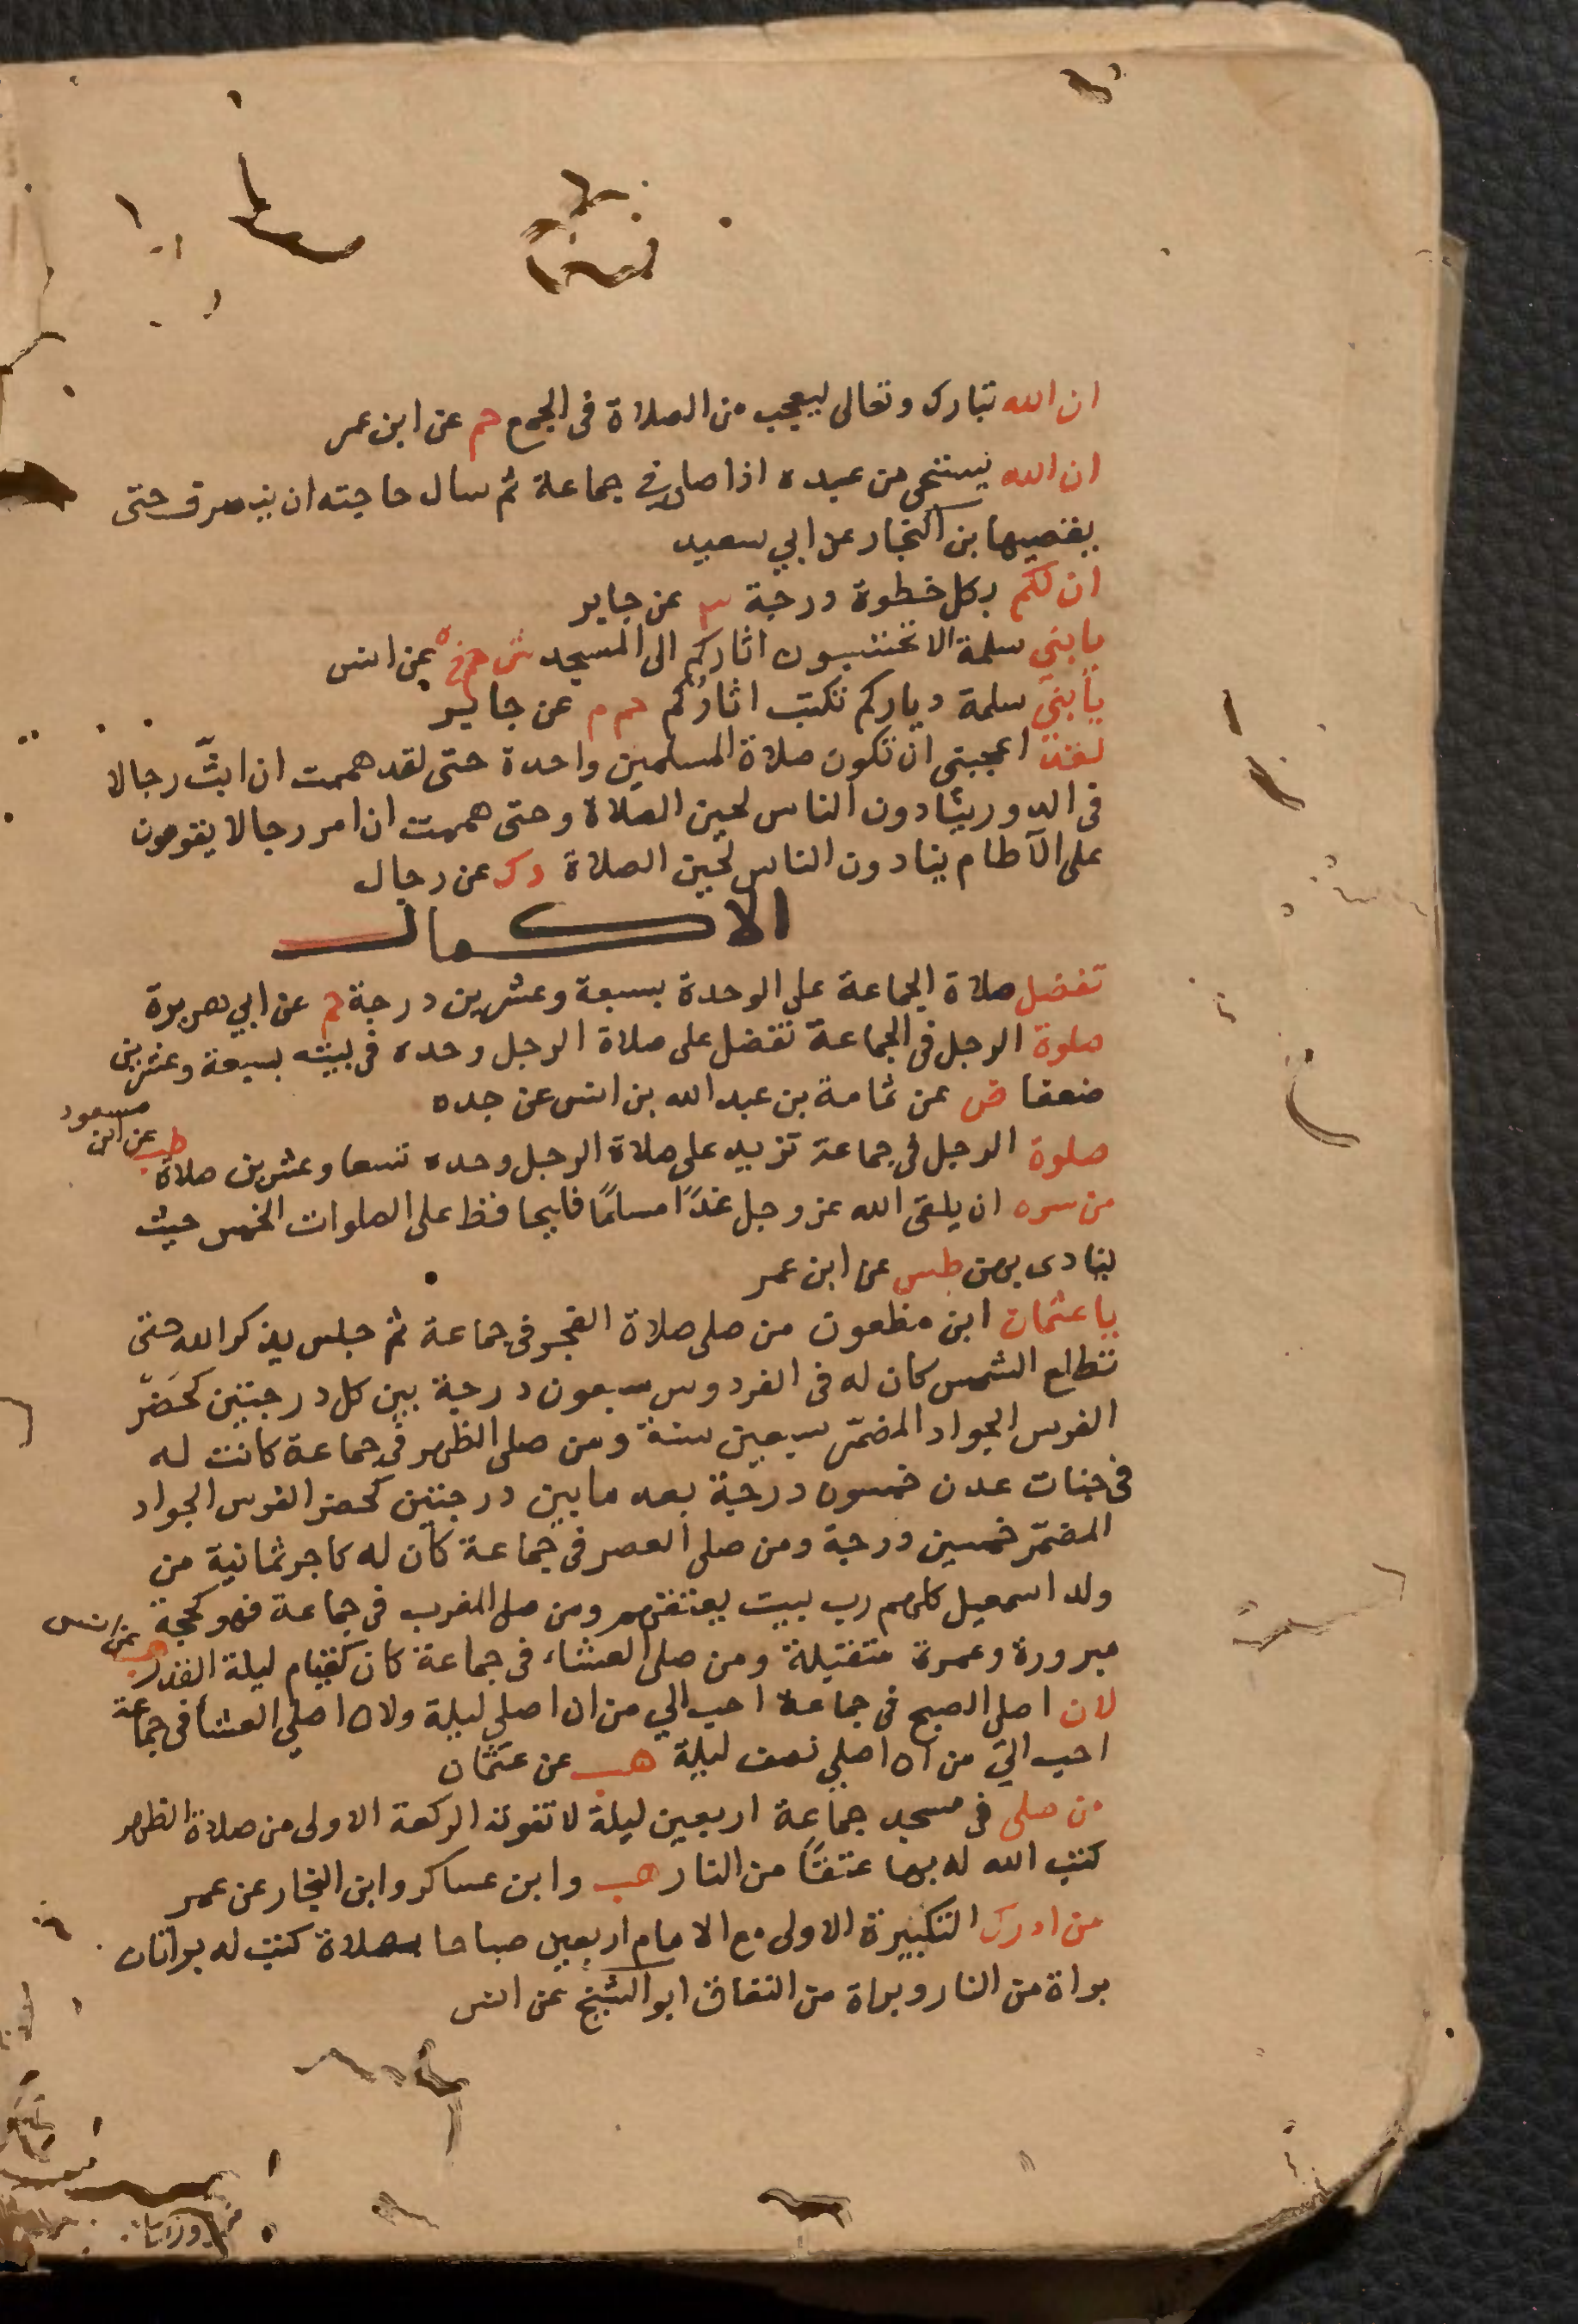 ان الله تبارك وتعالى ليعجب من الصلاة فى الجمع حم عن ابن عمر
ان الله يستحى من عبده اذا صلى فى جماعة ثم سال حاجته ان ينصرف حتى
يقضيها بن النجار عن ابي سعيد
ان لكم بكل خطوة درجة م عن جابر
يا بني سلمة الا تحتسبون اثاركم الى المسجد عن انس
يا بني سلمة دياركم تكتب اثاركم حم م عن جابر
لقد اعجبنى ان تكون صلاة المسلمين واحدة حتى لقد هممت ان ابثّ رجالا
فى الدور ينادون الناس لحين الصلاة وحتى هممت ان امر رجالا يقومون
على الآطام ينادون الناس لحين الصلاة دك عن رجال
الاكمال
تفضل صلاة الجماعة على الوحدة بسبعة وعشرين درجة م عن ابي هريرة
صلوة الرجل فى الجماعة تفضل على صلاة الرجل وحده فى بيته بسبعة وعشرين
ضعفا ض عن ثمامة بن عبد الله بن انس عن جده
صلوة الرجل فى جماعة تزيد على صلاة الرجل وحده تسعا وعشرين صلاة طب عن ابن مسعود
من سره ان يلقى الله عز وجل غدًا مسلمًا فليحافظ على الصلوات الخمس حيث
ينادى بهن طس عن ابن عمر
يا عثمان ابن مظعون من صلى صلاة الفجر فى جماعة ثم جلس يذكر الله حتى
تطلع الشمس كان له فى الفردوس سبعون درجة بين كل درجتين كحَضّر
الفرس الجواد المضمّر سبعين سنة ومن صلى الظهر فى جماعة كانت له
فى جنات عدن خمسون درجة بعد ما بين درجتين كحضر الفرس الجواد
المضمّر خمسين درجة ومن صلى العصر فى جماعة كان له كاجر ثمانية من
ولد اسمعيل كلهم رب بيت يعتقهم ومن صلى المغرب فى جماعة فهو كحجة
مبرورة وعمرة متقبلة ومن صلى العشاء فى جماعة كان كقيام ليلة القدر هب عن انس
لان اصلى الصبح فى جماعة احب الي من ان اصلي ليلة ولان اصلي العشا فى جماعة
احب الي من ان اصلي نصف ليلة هب عن عثمان
من صلى فى مسجد جماعة اربعين ليلة لا تفوته الركعة الاولى من صلاة الظهر
كتب الله له بها عتقًا من النار هب وابن عساكر وابن النجار عن عمر
من ادرك التكبيرة الاولى مع الامام اربعين صباحا كتب له براتان
براة من النار وبراة من النفاق ابو الشيخ عن انس